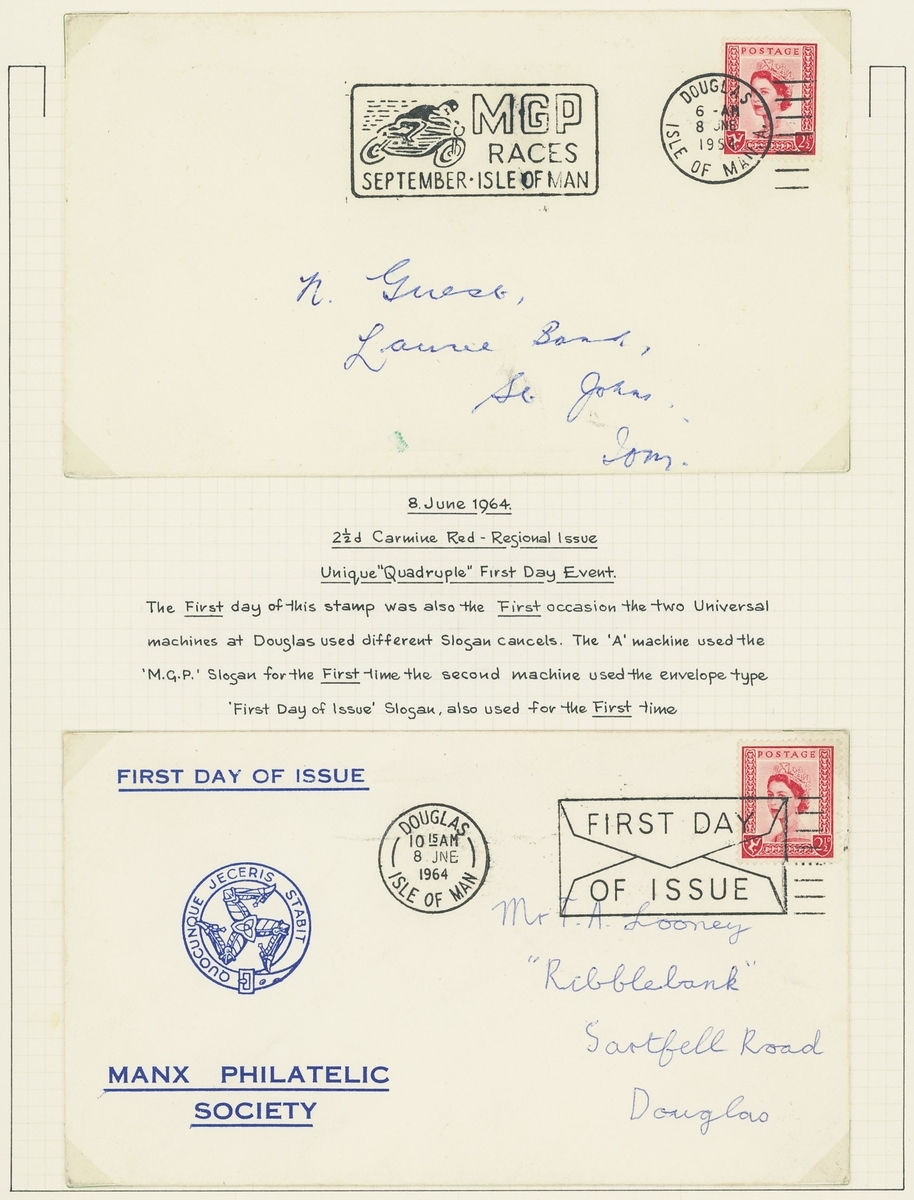 MGP
RACES
SEPTEMBER · ISLE OF MAN
DOUGLAS
6 - AM
8 JNE
1964
ISLE OF MAN A.
POSTAGE
2½D
N. Guest,
Laurie Bank,
St Johns.
Iom.
8. June 1964.
2½d Carmine Red - Regional Issue
Unique "Quadruple" First Day Event.
The First day of this stamp was also the First occasion the two Universal
machines at Douglas used different Slogan cancels. The 'A' machine used the
'M.G.P.' Slogan for the First time the second machine used the envelope type
'First Day of Issue' Slogan, also used for the First time
FIRST DAY OF ISSUE
DOUGLAS
10 15 AM
8 JNE
1964
ISLE OF MAN
FIRST DAY
OF ISSUE
POSTAGE
2½D
QUOCUNQUE JECERIS STABIT
Mr T.A. Looney
"Ribblebank"
Sartfell Road
Douglas
MANX PHILATELIC
SOCIETY